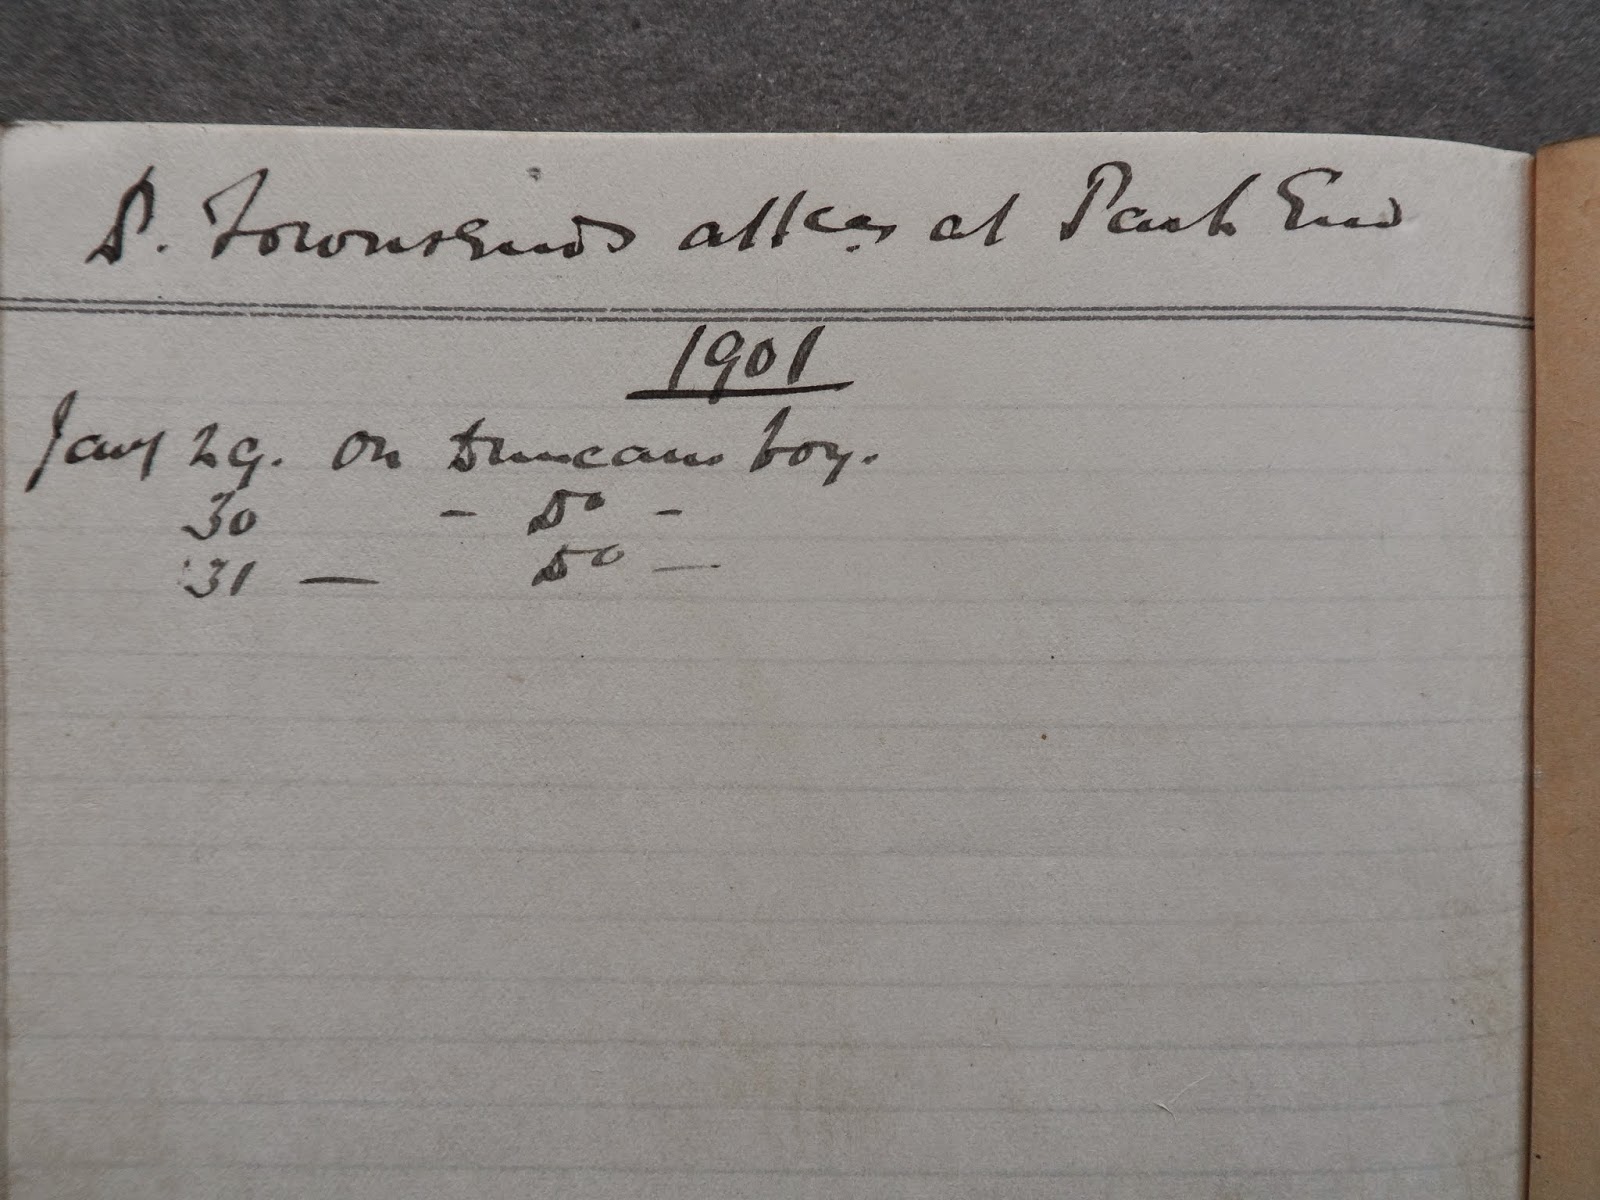 D. Townsends attces at Park End
1901
Jany 29. on Duncans boy.
30 - Do -
31 — Do —